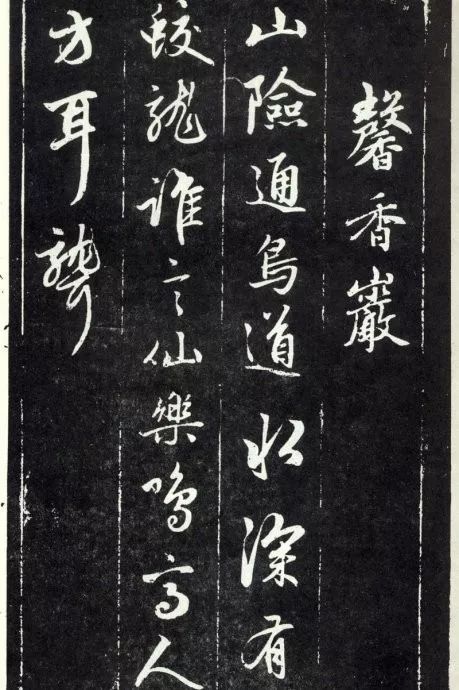 馨香巖
山險通鳥道水深有
蛟龍誰言仙樂鳴高人
方耳聾